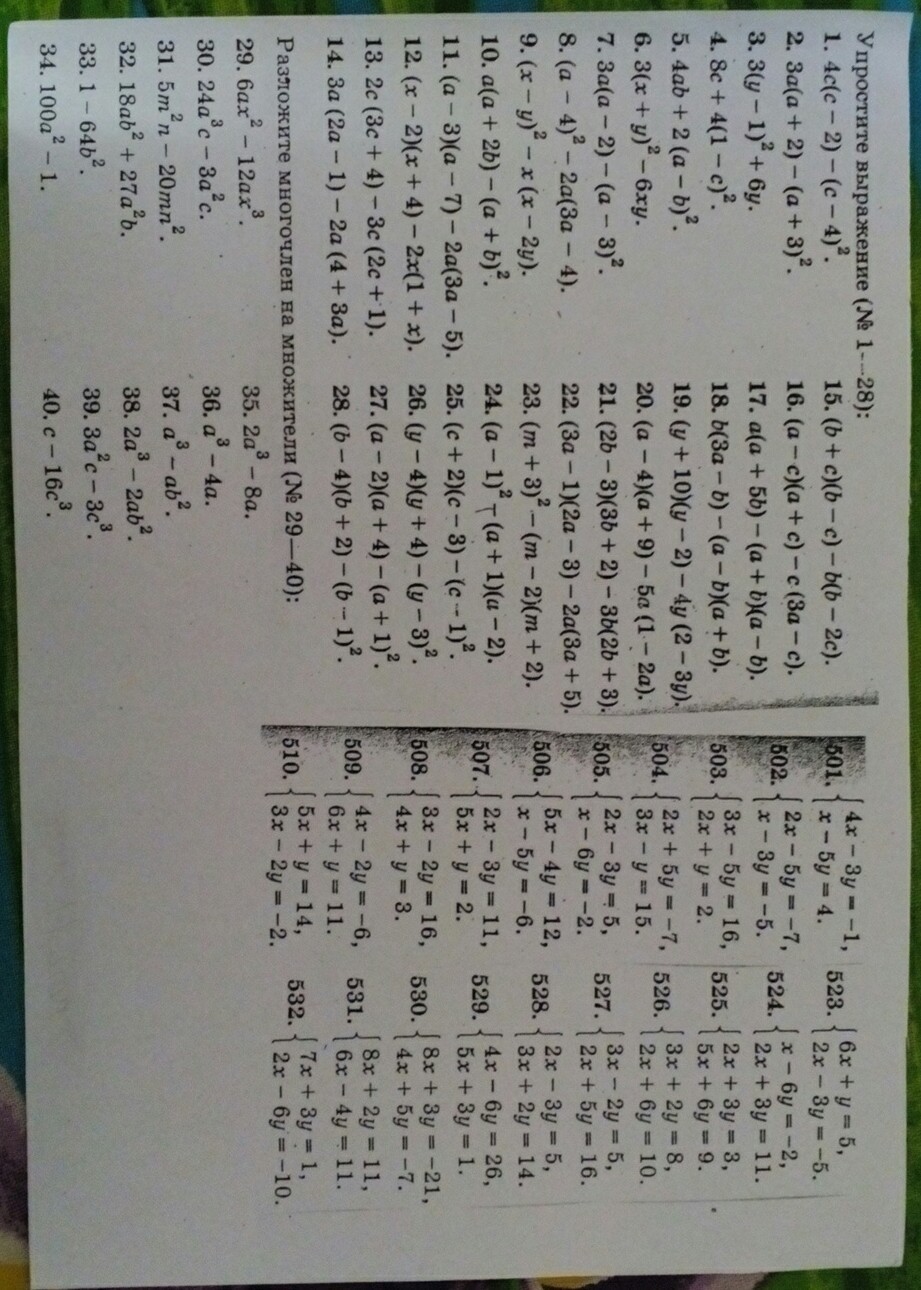 Упростите выражение (№ 1—28):
1. 4c(c − 2) − (c − 4)².
2. 3a(a + 2) − (a + 3)².
3. 3(y − 1)² + 6y.
4. 8c + 4(1 − c)².
5. 4ab + 2(a − b)².
6. 3(x + y)² − 6xy.
7. 3a(a − 2) − (a − 3)².
8. (a − 4)² − 2a(3a − 4).
9. (x − y)² − x(x − 2y).
10. a(a + 2b) − (a + b)².
11. (a − 3)(a − 7) − 2a(3a − 5).
12. (x − 2)(x + 4) − 2x(1 + x).
13. 2c(3c + 4) − 3c(2c + 1).
14. 3a(2a − 1) − 2a(4 + 3a).
15. (b + c)(b − c) − b(b − 2c).
16. (a − c)(a + c) − c(3a − c).
17. a(a + 5b) − (a + b)(a − b).
18. b(3a − b) − (a − b)(a + b).
19. (y + 10)(y − 2) − 4y(2 − 3y).
20. (a − 4)(a + 9) − 5a(1 − 2a).
21. (2b − 3)(3b + 2) − 3b(2b + 3).
22. (3a − 1)(2a − 3) − 2a(3a + 5).
23. (m + 3)² − (m − 2)(m + 2).
24. (a − 1)² − (a + 1)(a − 2).
25. (c + 2)(c − 3) − (c − 1)².
26. (y − 4)(y + 4) − (y − 3)².
27. (a − 2)(a + 4) − (a + 1)².
28. (b − 4)(b + 2) − (b − 1)².
Разложите многочлен на множители (№ 29—40):
29. 6ax² − 12ax³.
30. 24a³c − 3a²c.
31. 5m²n − 20mn².
32. 18ab² + 27a²b.
33. 1 − 64b².
34. 100a² − 1.
35. 2a³ − 8a.
36. a³ − 4a.
37. a³ − ab².
38. 2a³ − 2ab².
39. 3a²c − 3c³.
40. c − 16c³.
501. { 4x − 3y = −1,
x − 5y = 4.
502. { 2x − 5y = −7,
x − 3y = −5.
503. { 3x − 5y = 16,
2x + y = 2.
504. { 2x + 5y = −7,
3x − y = 15.
505. { 2x − 3y = 5,
x − 6y = −2.
506. { 5x − 4y = 12,
x − 5y = −6.
507. { 2x − 3y = 11,
5x + y = 2.
508. { 3x − 2y = 16,
4x + y = 3.
509. { 4x − 2y = −6,
6x + y = 11.
510. { 5x + y = 14,
3x − 2y = −2.
523. { 6x + y = 5,
2x − 3y = −5.
524. { x − 6y = −2,
2x + 3y = 11.
525. { 2x + 3y = 3,
5x + 6y = 9.
526. { 3x + 2y = 8,
2x + 6y = 10.
527. { 3x − 2y = 5,
2x + 5y = 16.
528. { 2x − 3y = 5,
3x + 2y = 14.
529. { 4x − 6y = 26,
5x + 3y = 1.
530. { 8x + 3y = −21,
4x + 5y = −7.
531. { 8x + 2y = 11,
6x − 4y = 11.
532. { 7x + 3y = 1,
2x − 6y = −10.